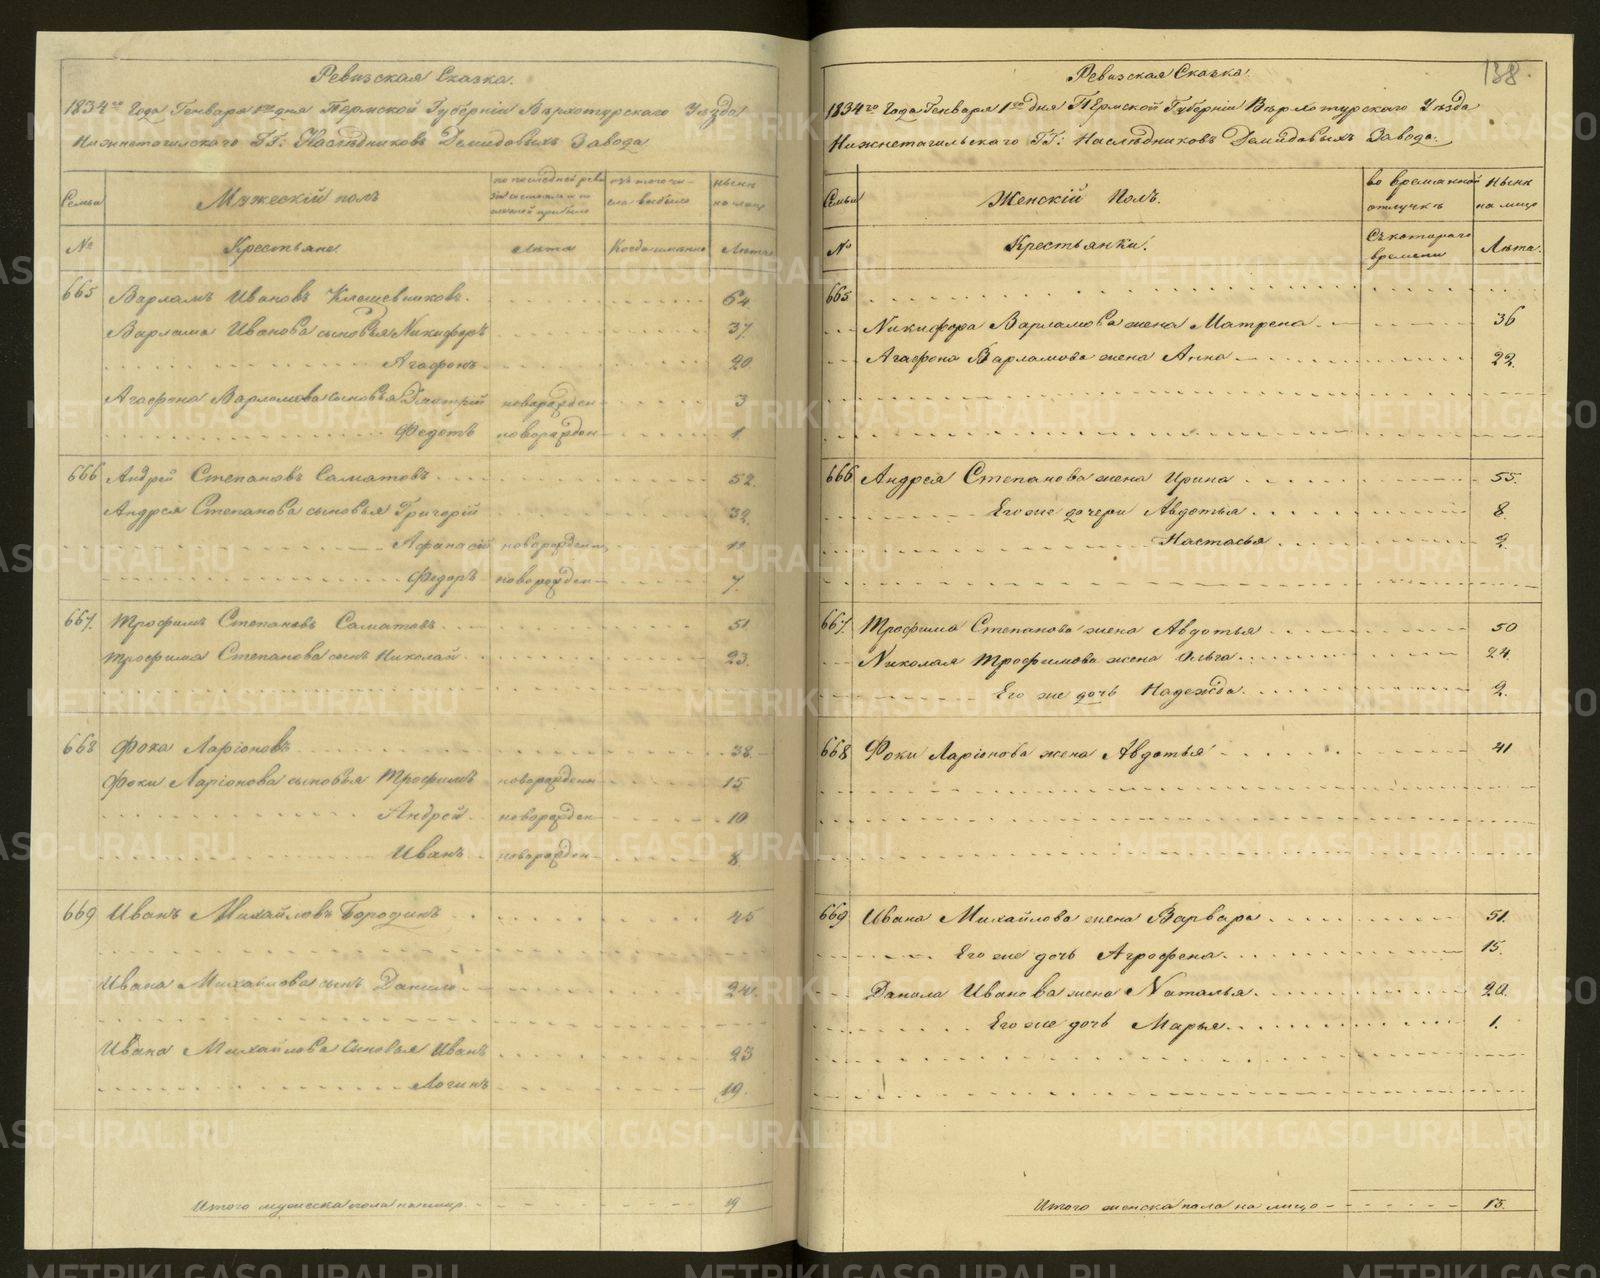 Ревизская Сказка.
1834го Года Генваря 1го дня Пермской Губерніи Верхотурскаго Уѣзда
Нижнетагильскаго ГГ: Наслѣдниковъ Демидовыхъ Завода
Семьи
Мужескій полъ
по последней реви
зіи состояло и по
слѣ оной прибыло
изъ того чи-
сла выбыло
нынѣ
на лицо
№
Крестьяне
Лѣта
Когда именно
Лѣта
665 Варламъ Ивановъ 64
Варлама Иванова сыновья Никифоръ 37
Агафонъ 20
Агафона Варламова сыновья Дмитрій новорожден 3
Федотъ новорожден 1
666 Андрей Степановъ Саматовъ 52.
Андрея Степанова сыновья Григорій 32
Афанасій новорожденн
Федоръ новорожден 7.
667. Трофимъ Степановъ Саматовъ 51
Трофима Степанова сынъ Николай 23.
668 Фока Ларіоновъ 38
Фоки Ларіонова сыновья Трофимъ новорожденн 15
Андрей новорожден 10
Иванъ новорожден 8
669 Иванъ Михайловъ Бородинъ 45
Ивана Михайлова сынъ Данило 24.
Ивана Михайлова сыновья Иванъ 23
Логинъ 19.
Итого мужеска пола на лицо 19
138.
Ревизская Сказка.
1834го Года Генваря 1го дня Пермской Губерніи Верхотурскаго Уѣзда
Нижнетагильскаго ГГ: Наслѣдниковъ Демидовыхъ Завода.
Семьи
Женскій Полъ.
во временной
отлучкѣ
нынѣ
на лицо
№
Крестьянки.
Съ котораго
времени
Лѣта.
665
Никифора Варламова жена Матрена 36
Агафона Варламова жена Анна 22.
666 Андрея Степанова жена Ирина 55.
Его же дочери Авдотья 8.
Настасья 2.
667. Трофима Степанова жена Авдотья 50
Николая Трофимова жена Ольга 24.
Его же дочь Надежда 2.
668 Фоки Ларіонова жена Авдотья 41
669 Ивана Михайлова жена Варвара 51.
Его же дочь Агрофена 15.
Данила Иванова жена Наталья 20.
Его же дочь Марья 1.
Итого женска пола на лицо 13.
METRIKI.GASO-URAL.RU